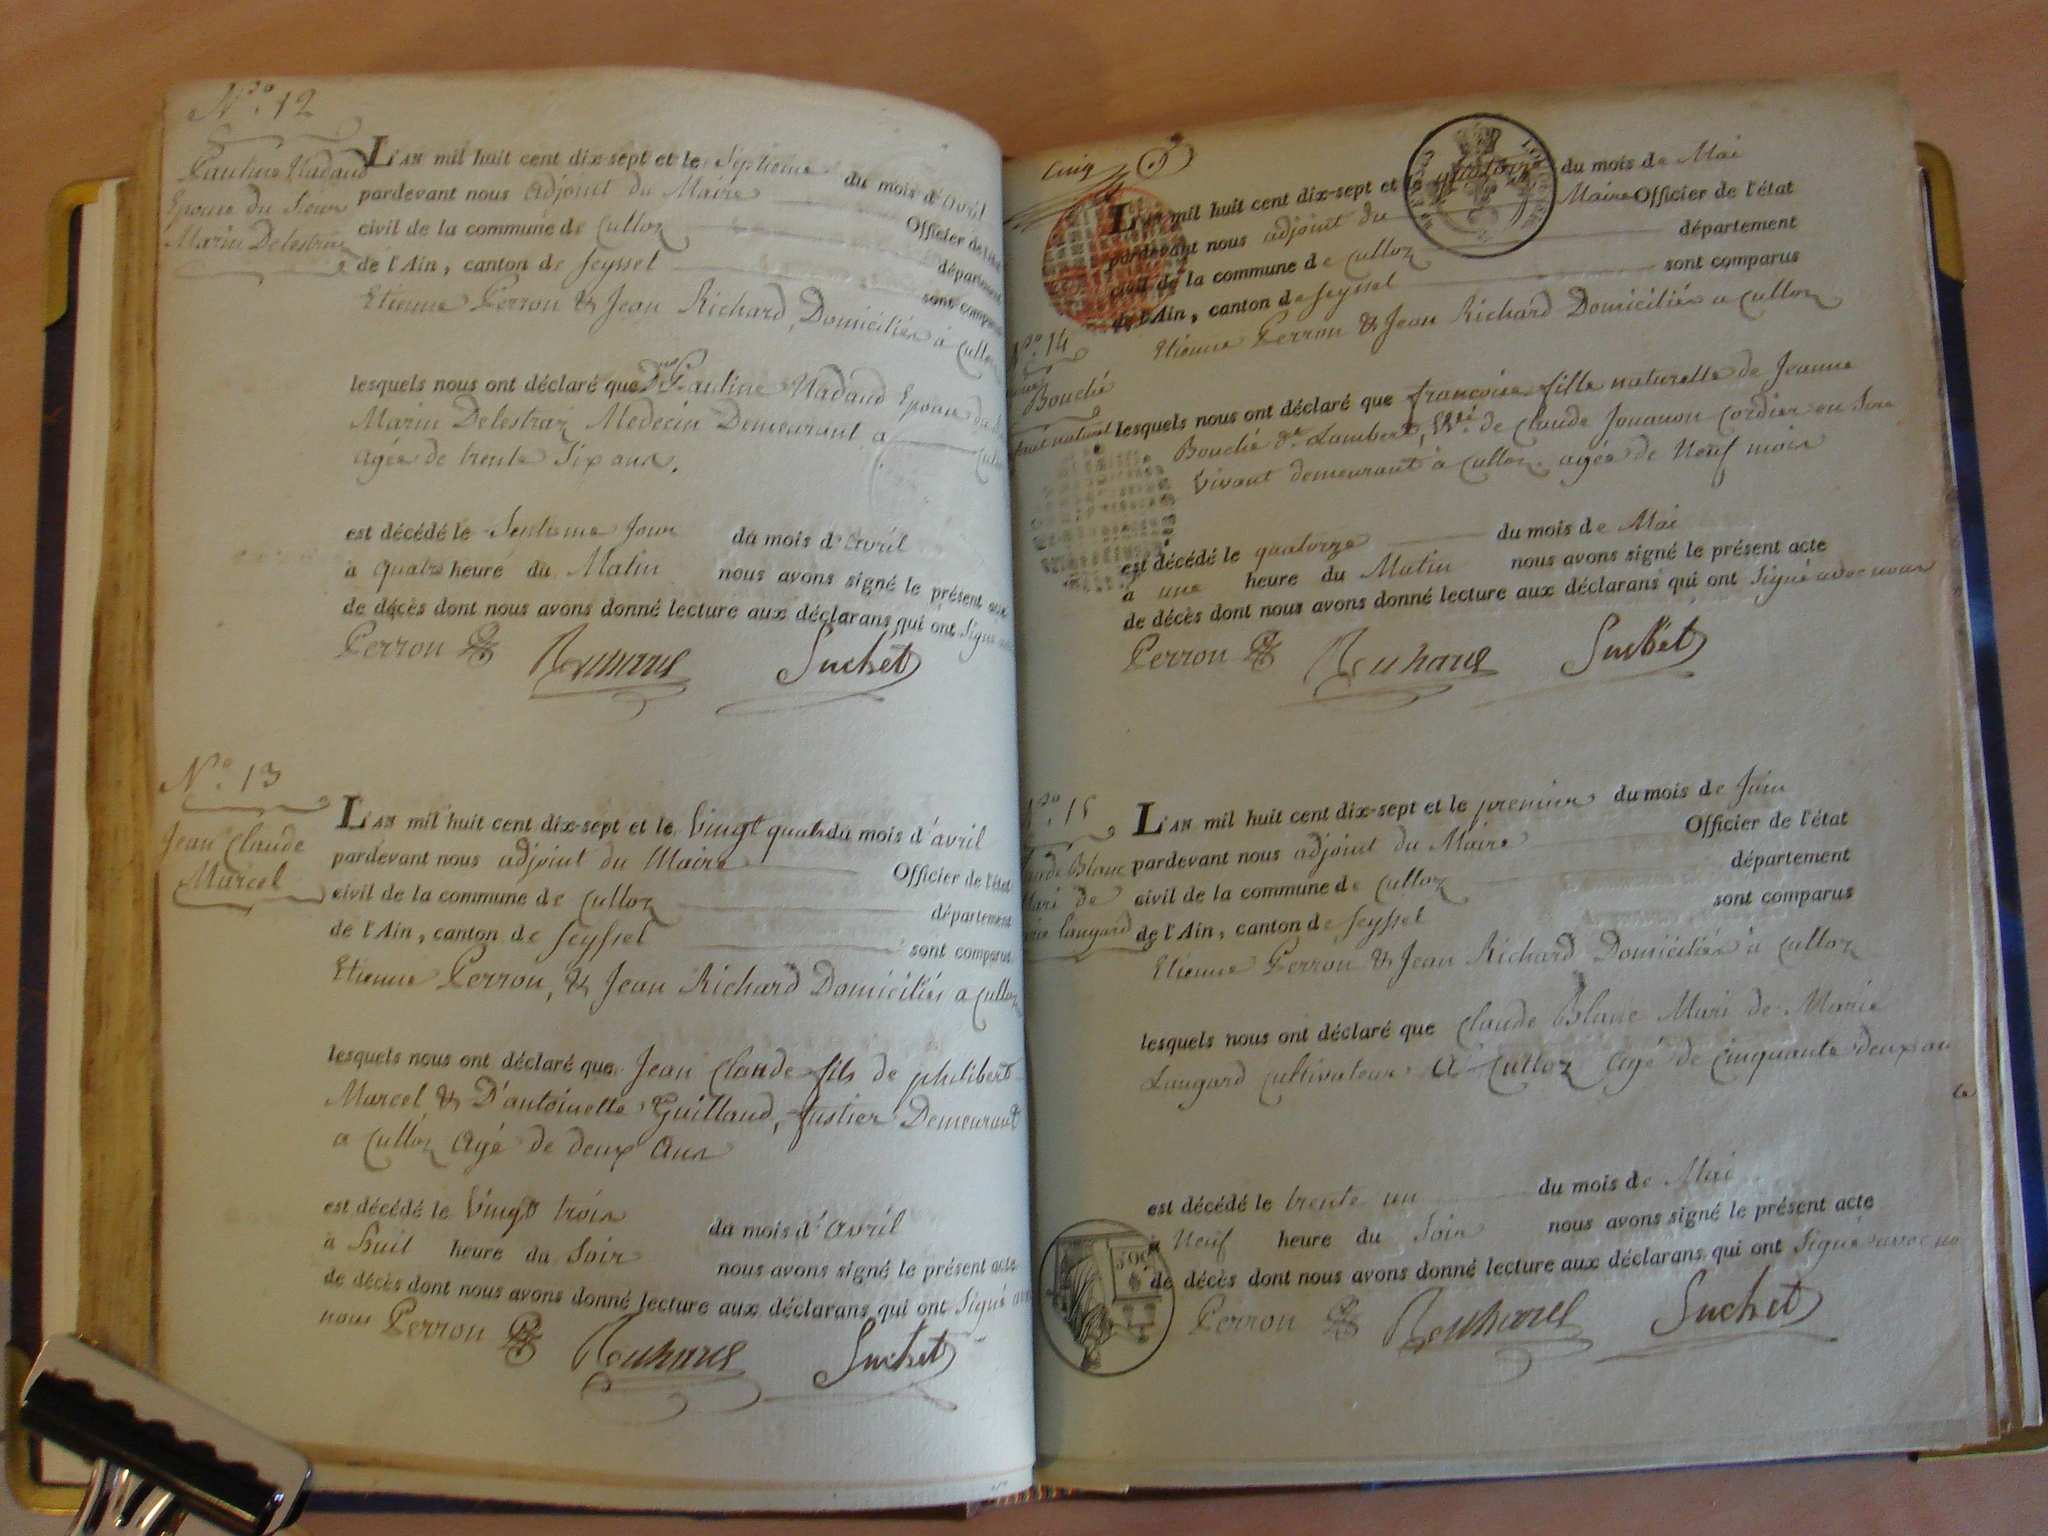 N.ro 12
Pauline Nadaud
Epouse du Sieur
Marin Delestraz
L'AN mil huit cent dix-sept et le Septieme du mois d'avril
pardevant nous adjoint du Maire Officier de l'état
civil de la commune de Culloz département
de l'Ain, canton de Seyssel sont comparus
Etienne Perron & Jean Richard, Domiciliés à Culloz
lesquels nous ont déclaré que Pauline Nadaud Epouse du
Marin Delestraz Medecin Demeurant a Culloz
agée de trente Six ans.
est décédé le Septieme Jour du mois d'avril
à quatre heure du Matin nous avons signé le présent acte
de décès dont nous avons donné lecture aux déclarans qui ont Signé
Perron Richard Suchet
N.o 13
Jean Claude
Marcel
L'AN mil huit cent dix-sept et le Vingt quatre du mois d'avril
pardevant nous adjoint du Maire Officier de l'état
civil de la commune de Culloz département
de l'Ain, canton de Seyssel sont comparus
Etienne Perron, & Jean Richard Domiciliés a Culloz
lesquels nous ont déclaré que Jean Claude fils de philibert
Marcel & D'antoinette Guilland, fustier Demeurant
a Culloz Agé de deux Ans
est décédé le Vingt trois du mois d'avril
à huit heure du Soir nous avons signé le présent acte
de décès dont nous avons donné lecture aux déclarans qui ont Signé avec
nous Perron Richard Suchet
Cinq 5
L'AN mil huit cent dix-sept et le quatorze du mois de Mai
pardevant nous adjoint du Maire Officier de l'état
civil de la commune de Culloz département
de l'Ain, canton de Seyssel sont comparus
Etienne Perron & Jean Richard Domiciliés a Culloz
N.ro 14
Bouché
lesquels nous ont déclaré que françoise fille naturelle de Jeanne
Bouché d.te Lambert, V.ve de Claude Jouanon Cordier en Son
Vivant demeurant à Culloz. agée de Neuf mois
est décédé le quatorze du mois de Mai
à une heure du Matin nous avons signé le présent acte
de décès dont nous avons donné lecture aux déclarans qui ont Signé avec nous
Perron Richard Suchet
15
Blanc
Mari de
Laugard
L'AN mil huit cent dix-sept et le premier du mois de Juin
pardevant nous adjoint du Maire Officier de l'état
civil de la commune de Culloz département
de l'Ain, canton de Seyssel sont comparus
Etienne Perron & Jean Richard Domiciliés à Culloz
lesquels nous ont déclaré que Claude Blanc Mari de Marie
Laugard Cultivateur A Culloz Agé de Cinquante deux an
est décédé le trente un du mois de Mai
à Neuf heure du Soir nous avons signé le présent acte
de décès dont nous avons donné lecture aux déclarans qui ont Signé avec
Perron Richard Suchet